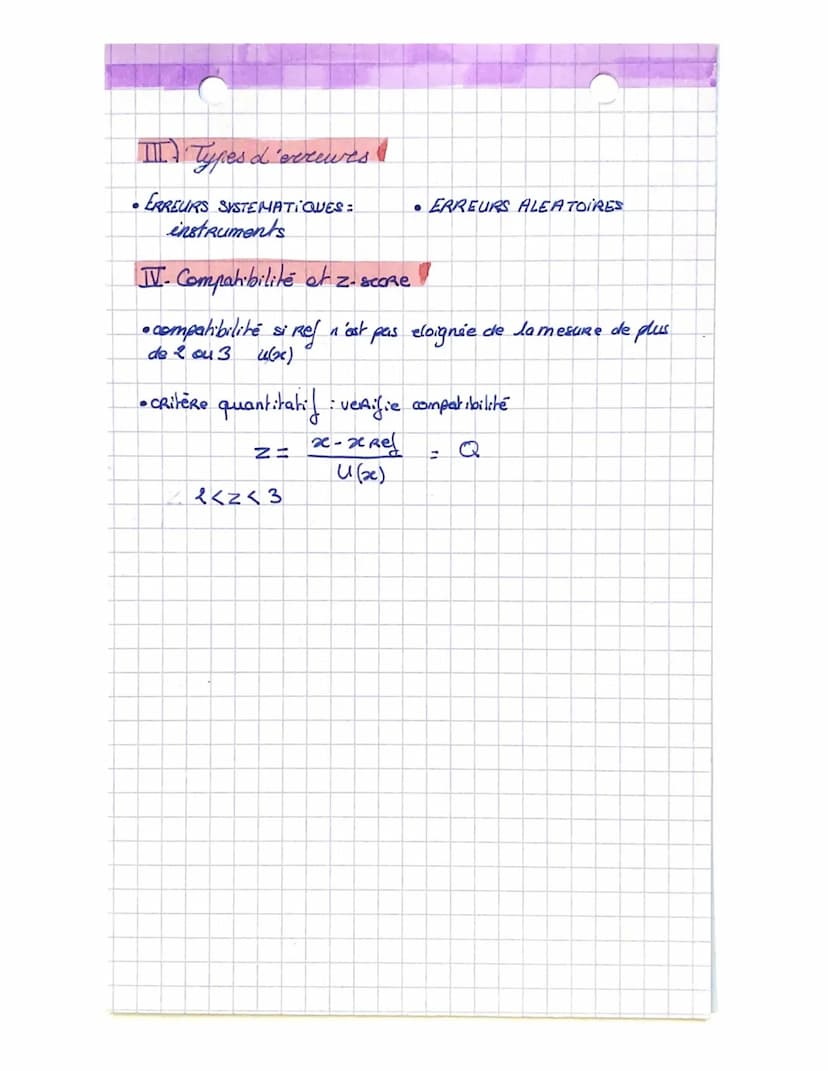 III.) Types d'erreurs
• ERREURS SYSTEMATIQUES : • ERREURS ALEATOIRES
instruments
IV- Compatibilité et z-score
• compatibilité si Ref n'est pas eloignée de la mesure de plus
de 2 ou 3 u(x)
• CRITÈRE quantitatif : verifie compatibilité
z = x - x Ref / U(x) = Q
2 < z < 3